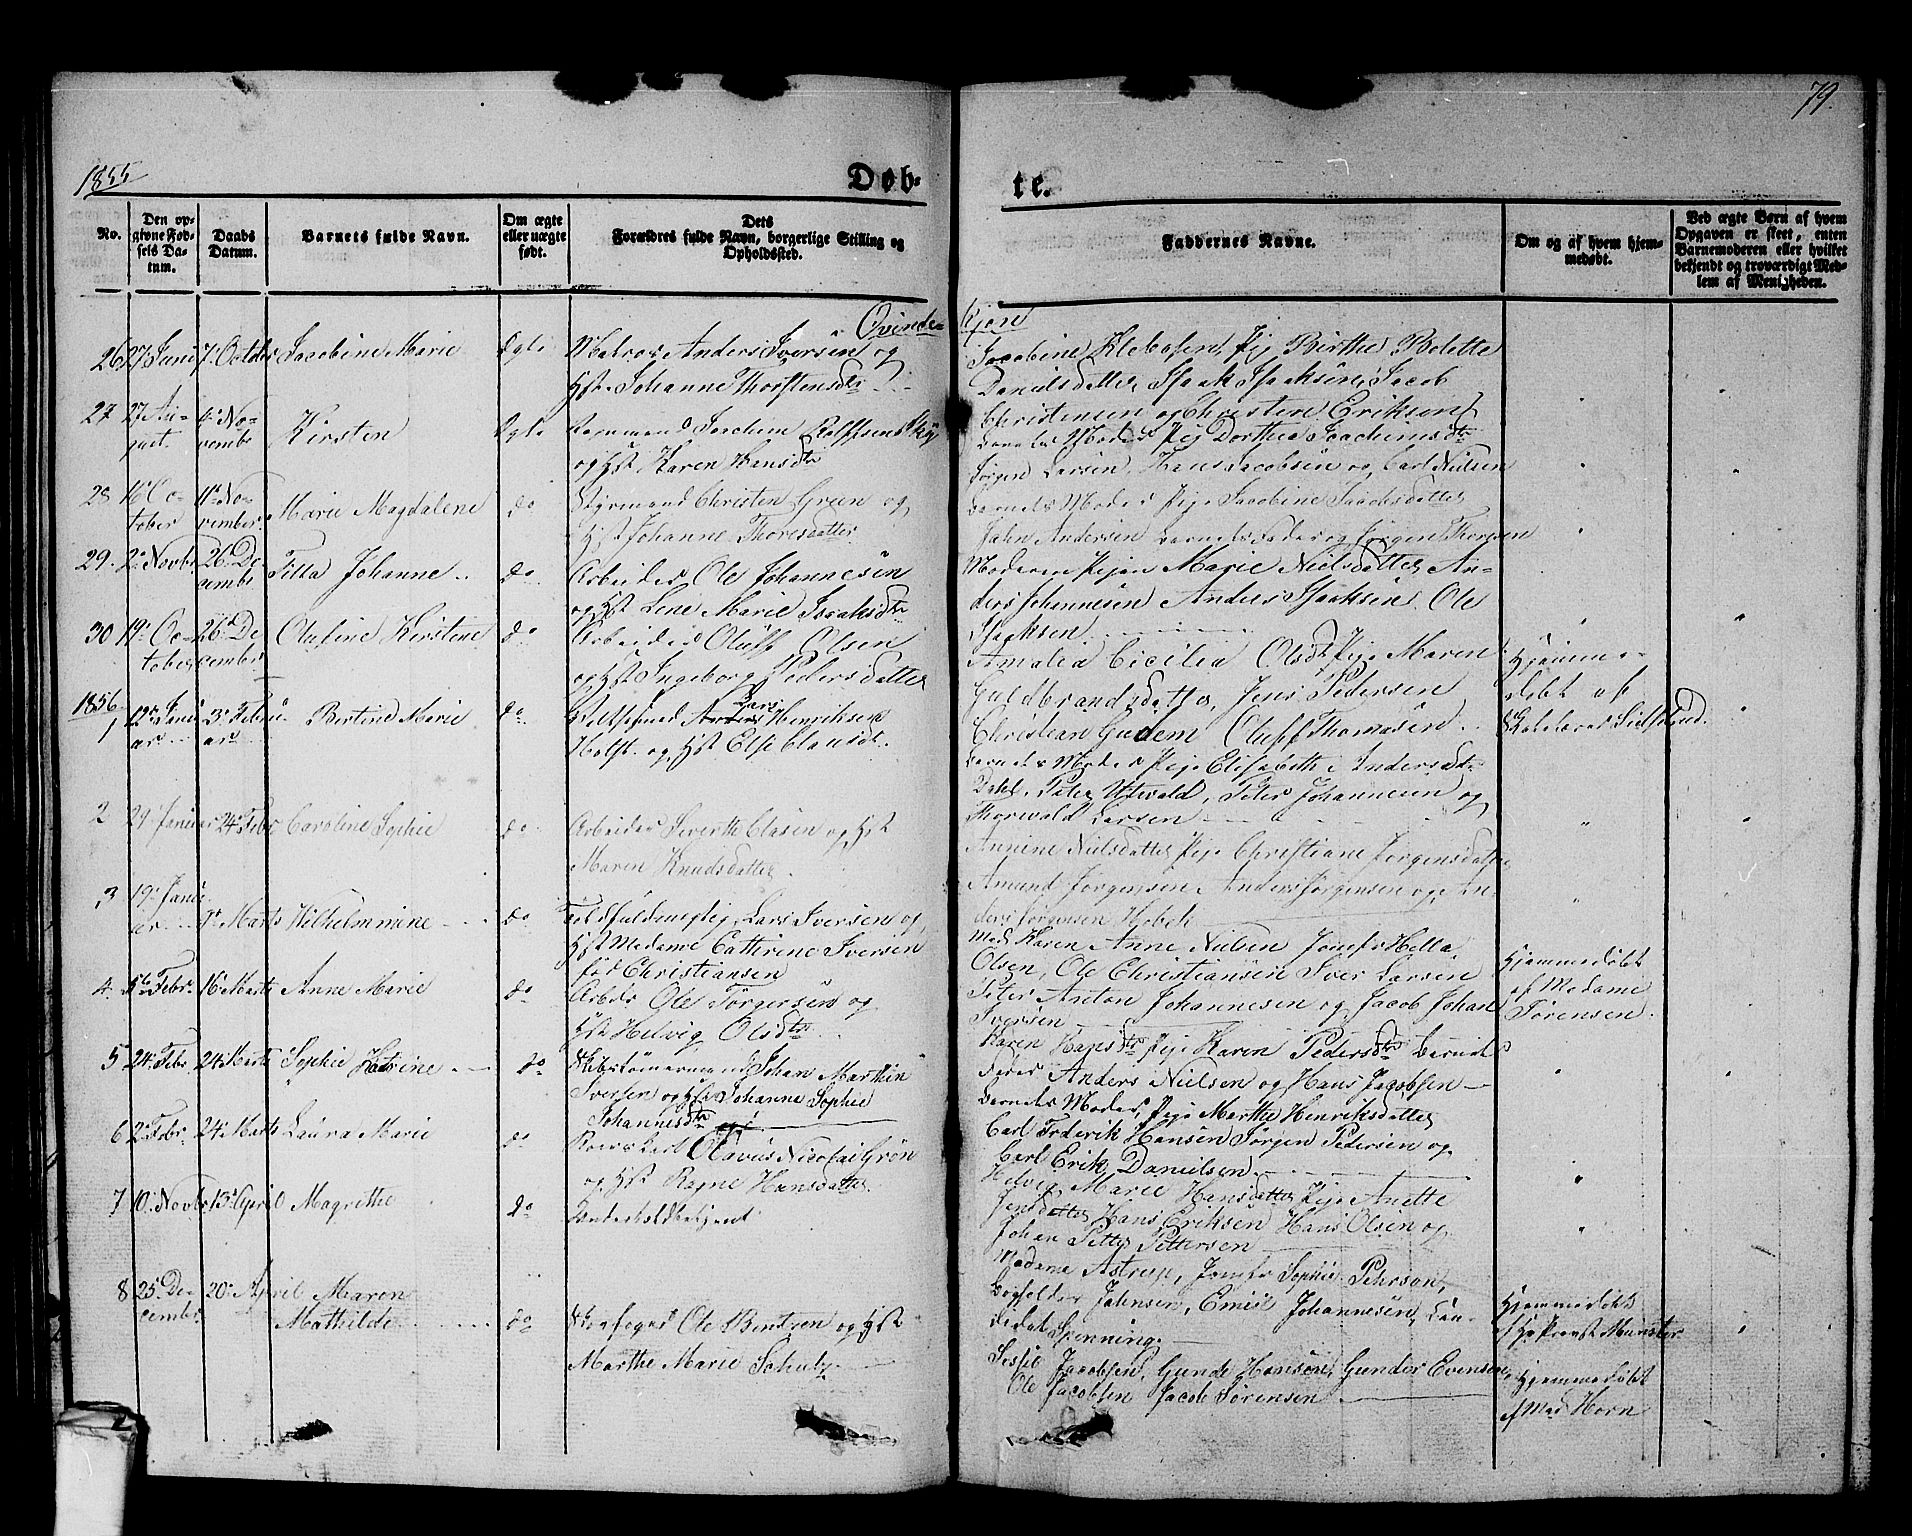 79.
1855
Døb-
te.
No.
Den op-
givne Fød-
sels Da-
tum.
Daabs
Datum.
Barnets fulde Navn.
Om ægte
eller uægte
født.
Dets
Forældres fulde Navn, borgerlige Stilling og
Opholdssted.
Faddernes Navne.
Om og af hvem hjem-
medøbt.
Ved ægte Børn af hvem
Opgaven er skeet, enten
Barnemoderen eller hvilket
bekjendt og troværdigt Med-
lem af Menigheden.
Qvinde-
kjøn
26 27 Juni 7. October Jacobine Marie Ægte Matros Anders Iversen og
Hst. Johanne Thorstensdtr
Danielsdatter, Isaak Isaaksen, Jacob
Christensen og Christen Eriksen
27 27 Au-
gust
4. No-
vembr
Kirsten Ægte Joachim
og Hst Karen Hansdtr
Barnets Moder Dorthea Joachimsdtr
Jørgen Larsen, Hans Jacobsen og Carl Nielsen
28 16 Oc-
tober
11 No-
vember
Marie Magdalene do Styrmand Christen Green og
Hst Johanne Thoresdatter
Barnets Moder Pige Jacobine Isaachsdatter
Jahn Andersen Barnets Fader og Jørgen Thoresen
29. 2. Novbr. 26. De-
cembr
Titta Johanne do Arbeider Ole Johannesen
og Hst Lene Marie Isaaksdtr
Moderen Pigen Marie Nielsdatter, An-
ders Johannesen Anders Isaaksen. Ole
Isaaksen
30 19. Oc-
tober
26 De-
cembr
Olufine Kirstene do Arbeider Oluff Olsen
og Hst Ingeborg Pedersdatter
Amalia Cicilia Olsdtr Pige Maren
Guldbrandsdatter, Jens Pedersen
Christian Gudem Oluff Thomasen
Hjemme-
døbt af
1856
1 12. Janu-
ar
3. Febru-
ar
Bertine Marie do Lars Henriksen
Holst. og Hst Else Clausdt.
Barnets Moder Pige Elisabeth Andersdtr
Dahl, Peter Utwald, Peter Johannesen og
Thorwald Larsen
2 29 Januar 24 Febr Caroline Sophie do Arbeider Sverth Clasen og Hst
Maren Knudsdatter
Annine Nielsdatter Pige Christiane Jørgensdatter
Amund Jørgensen Anders Jørgensen og An-
ders Jørgensen Hobek
3 19. Janu-
ar
9. Marts Wilhelmmine do Toldfuldmegtig Lars Iversen og
Hst Madame Cathrine Iversen
fød Christiansen
Mad Karen Anne Nielsen Jomfr Hella
Olsen, Ole Christiansen Iver Larsen
Peter Anton Johannesen og Jacob Johan
Iversen
Hjemmedøbt
af Madame
Sørensen
4. 5. Febr. 16 Marts Anne Marie do Arbdr Ole Torgersen og
Hst Helvig Olsdtr
Karen Hansdtr Pige Karen Pedersdtr Barnets
Fader Anders Nielsen og Hans Jacobsen
5 24. Febr 24. Marts Sophie Katrine do Skibstømermand Johan Marthin
Iversen og Hst Johanne Sophie
Johannesdtr
Barnets Moder, Pige Marthe Henriksdatter
Carl Frderik Hansen Jørgen Pedersen og
Carl Erik Danielsen
6 2. Febr. 24. Marts Laura Marie do Olavus Nicolai Grøn
og Hst Ragne Hansdatter
Helvig Marie Hansdatter Pige Anette
Jensdatter Hans Eriksen Hans Olsen og
Johan Petter Pettersen
7 10. Novbr 13. April Magrethe do
Madame Astrup, Jomfr Sophie Pehrson,
Bogholder Jahnsen, Emiel Johannesen, Can-
didat Spenning
Hjemmedøbt
af Hr Provst Munster
8 25. De-
cembr.
20. April Maren
Mathilde do Skovfoged Ole Bentzen og Hst
Marthe Marie Schulz
Sossie Jacobsen, Gunde Hansen, Gunder Evensen
Ole Jacobsen Jacob Sørensen
Hjemmedøbt
af Mad Horn